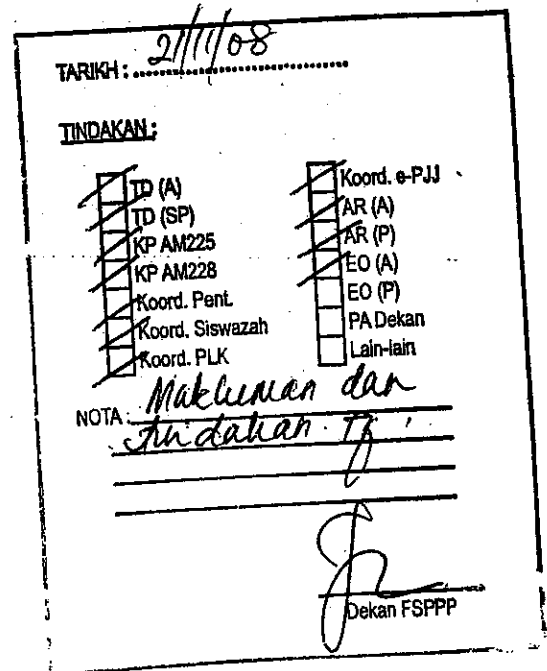 TARIKH : 21/11/08
TINDAKAN :
TD (A)
TD (SP)
KP AM225
KP AM228
Koord. Pent.
Koord. Siswazah
Koord. PLK
Koord. e-PJJ
AR (A)
AR (P)
EO (A)
EO (P)
PA Dekan
Lain-lain
NOTA : Makluman dan
tindakan
Dekan FSPPP